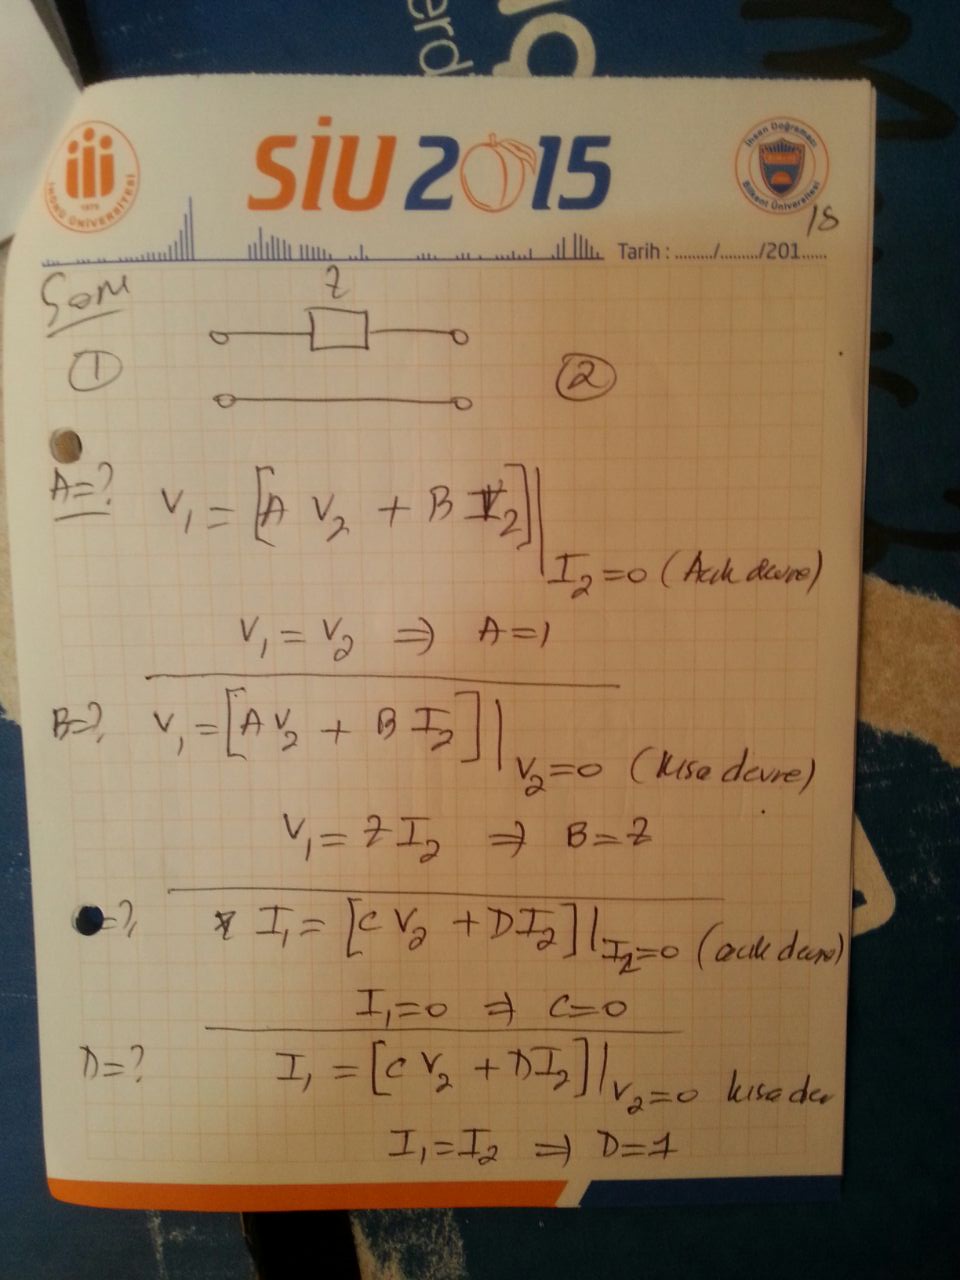 erdi
SİU 2015
İNÖNÜ ÜNİVERSİTESİ
1975
İhsan Doğramacı
Bilkent Üniversitesi
18
Tarih : ........./........./201......
Soru
Z
1
2
A=? V₁ = [A V₂ + B I₂]|I₂=0 (Açık devre)
V₁ = V₂ ⇒ A=1
B=? V₁ = [A V₂ + B I₂]|V₂=0 (kısa devre)
V₁ = Z I₂ ⇒ B=Z
=? I₁ = [C V₂ + D I₂]|I₂=0 (açık devre)
I₁=0 ⇒ C=0
D=? I₁ = [C V₂ + D I₂]|V₂=0 kısa dev
I₁=I₂ ⇒ D=1